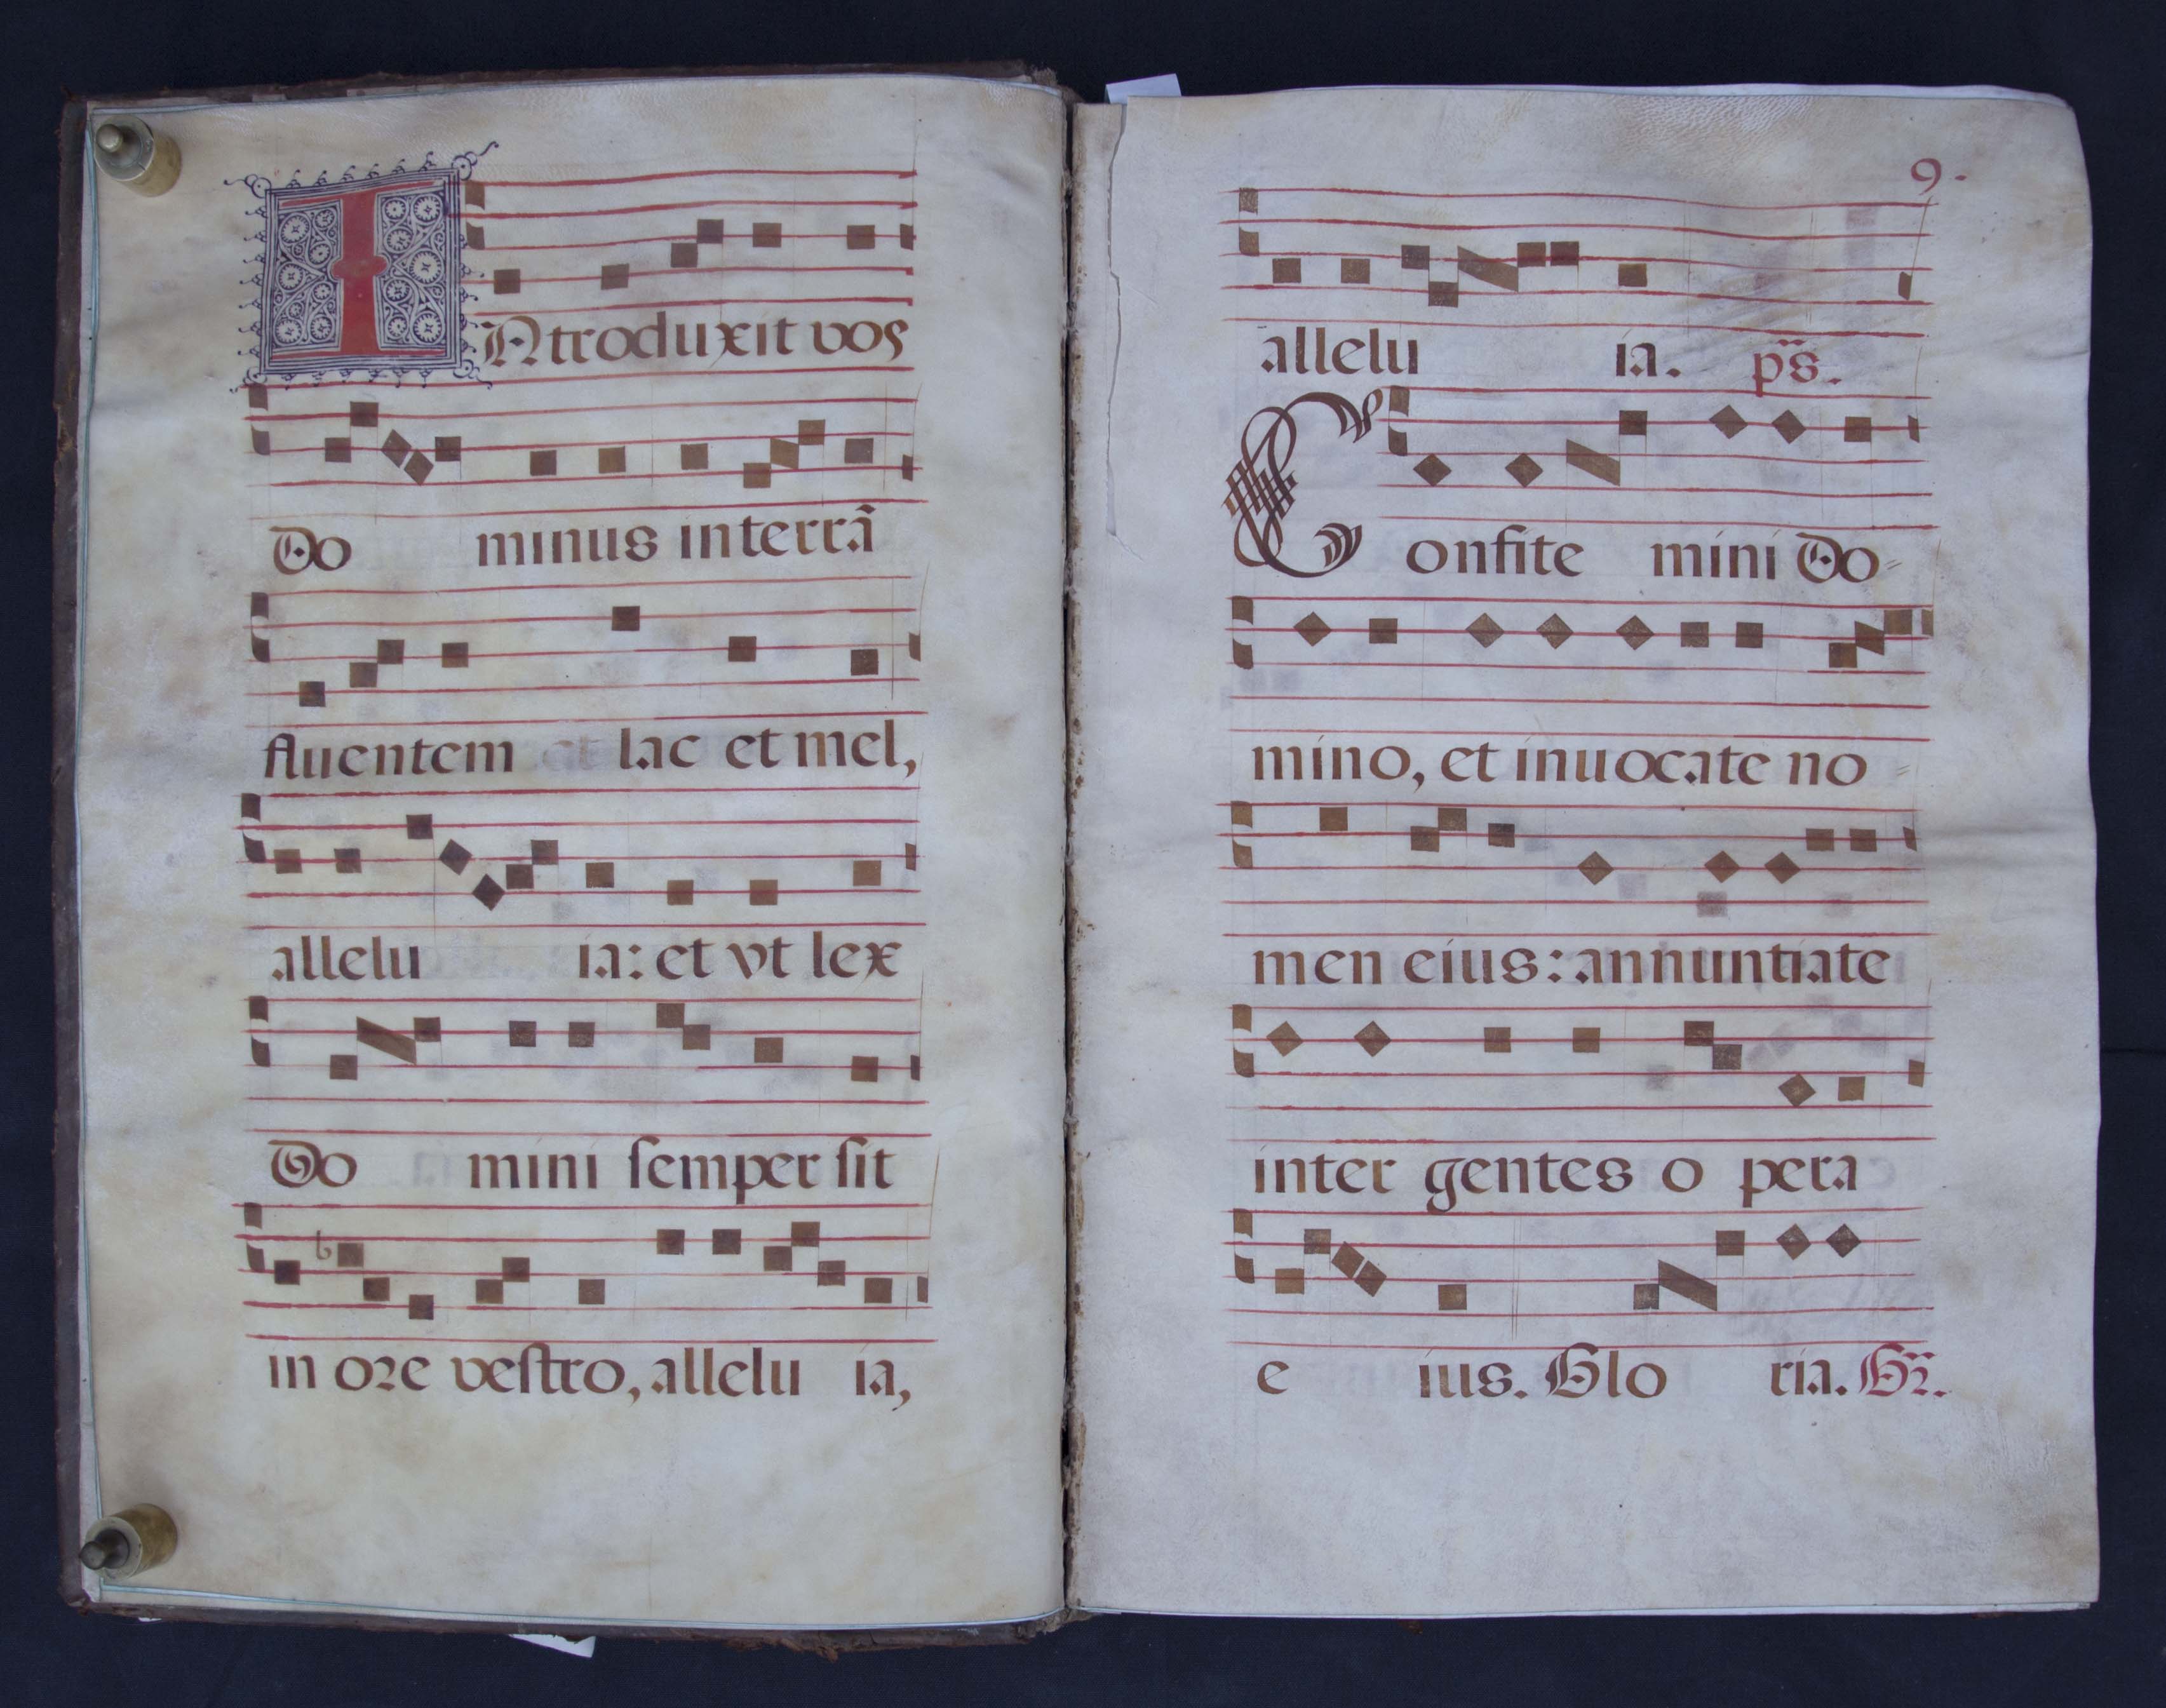 INtroduxit vos
Do minus in terrã
fluentem et lac et mel,
allelu ia: et vt lex
Do mini ſemper ſit
in oꝛe veſtro, allelu ia,
9.
allelu ia. ps.
Confite mini Do=
mino, et inuocate no=
men eius: annuntiate
inter gentes o pera
e ius. Glo ria. Gꝛ.